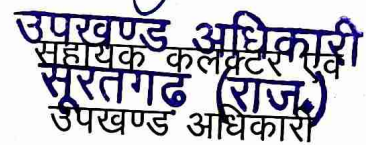 उपखण्ड अधिकारी
सहायक कलक्टर एवं
सूरतगढ (राज.)
उपखण्ड अधिकारी